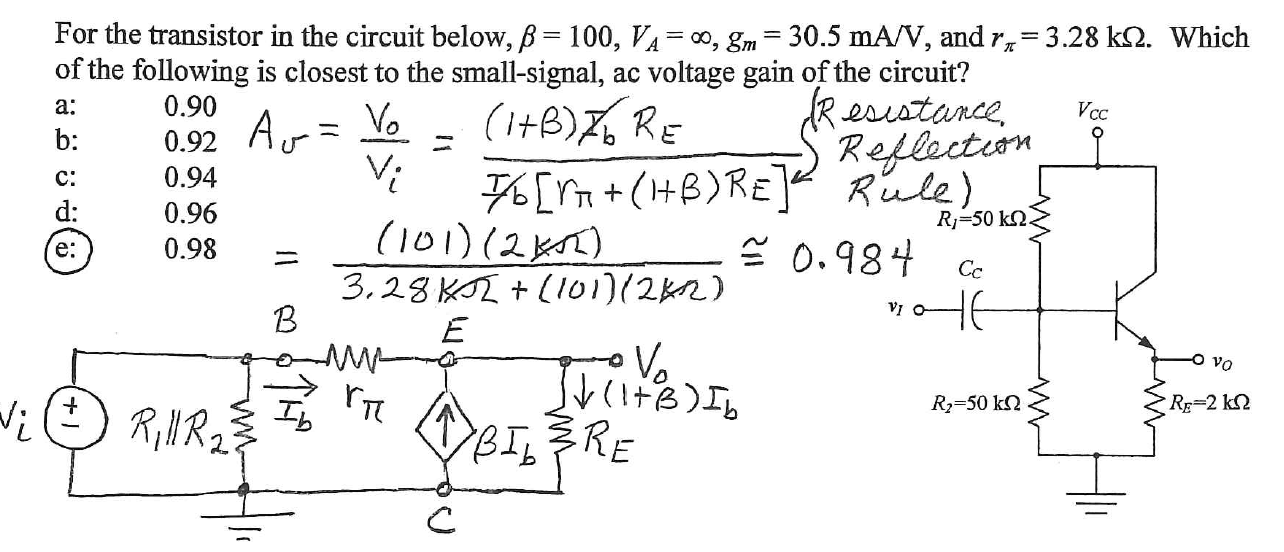 For the transistor in the circuit below, β = 100, V_A = ∞, g_m = 30.5 mA/V, and r_π = 3.28 kΩ. Which
of the following is closest to the small-signal, ac voltage gain of the circuit?
a: 0.90
b: 0.92
c: 0.94
d: 0.96
e: 0.98
A_v = V_o / V_i = (1+β) I_b R_E / I_b [r_π + (1+β) R_E]
(Resistance
Reflection
Rule)
= (101)(2kΩ) / 3.28kΩ + (101)(2kΩ) ≅ 0.984
V_CC
R_1=50 kΩ
C_C
v_I
v_O
R_2=50 kΩ
R_E=2 kΩ
B
E
V_i
+
-
R_1||R_2
I_b
r_π
βI_b
V_o
↓(1+β)I_b
R_E
C